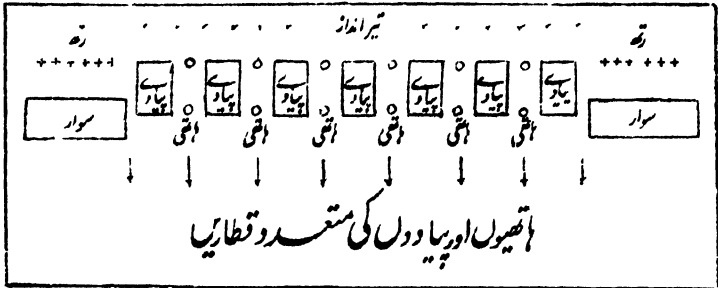 تیر انداز
رتھ رتھ
پیادے پیادے پیادے پیادے پیادے پیادے پیادے
سوار سوار
ہاتھی ہاتھی ہاتھی ہاتھی ہاتھی ہاتھی
ہاتھیوں اور پیادوں کی متعدد قطاریں